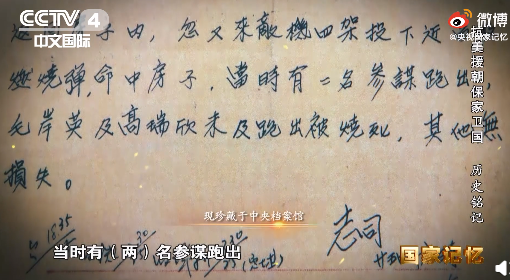 CCTV 4
中文国际
微博
@央视国家记忆
抗美援朝保家卫国 历史铭记
子内,忽又来敵機四架投下近
燃烧弹,命中房子,當時有二名参謀跑出,
毛岸英及高瑞欣未及跑出被燒死,其他無
損失。
志司
现珍藏于中央档案馆
当时有(两)名参谋跑出
国家记忆